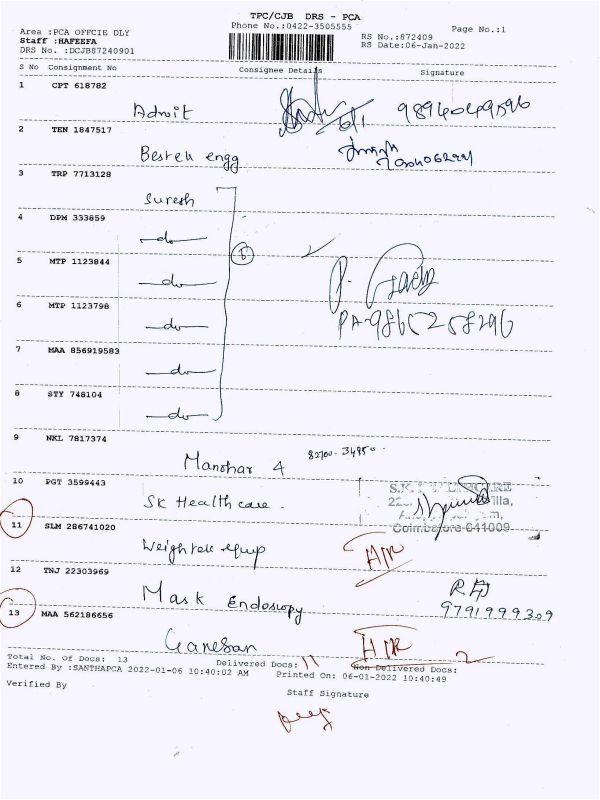 TPC/CJB DRS - PCA
Phone No.:0422-3505555
Page No.:1
Area :PCA OFFCIE DLY
Staff :HAFEEFA
RS No.:872409
DRS No. :DCJB87240901
RS Date:06-Jan-2022
S No Consignment No Consignee Details Signature
1 CPT 618782
Admit 6/1
2 TEN 1847517
Bestek engg
3 TRP 7713128
Suresh
4 DPM 333859
-do-
5 MTP 1123844
-do-
6 MTP 1123798
-do-
7 MAA 856919583
-do-
8 STY 748104
-do-
9 NKL 7817374
Manohar 4
10 PGT 3599443
SK Health care.
Coimbatore-641009
11 SLM 286741020
12 TNJ 22303969
Mask Endoscopy
9791999309
13 MAA 562186656
Ganesan
Total No. Of Docs: 13 Delivered Docs: 11 Non Delivered Docs: 2
Entered By :SANTHAPCA 2022-01-06 10:40:02 AM Printed On: 06-01-2022 10:40:49
Verified By
Staff Signature